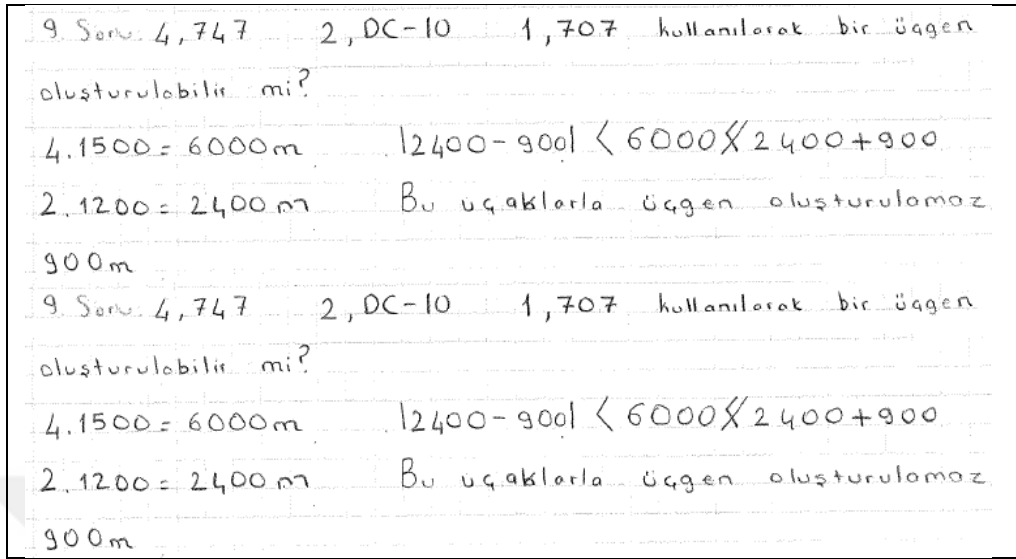 9. Soru: 4, 747 2, DC-10 1, 707 kullanılarak bir üçgen
oluşturulabilir mi?
4.1500 = 6000m |2400-900| < 6000 ≮ 2400+900
2.1200 = 2400 m Bu uçaklarla üçgen oluşturulamaz
900m
9. Soru: 4, 747 2, DC-10 1, 707 kullanılarak bir üçgen
oluşturulabilir mi?
4.1500 = 6000m |2400-900| < 6000 ≮ 2400+900
2.1200 = 2400 m Bu uçaklarla üçgen oluşturulamaz
900m